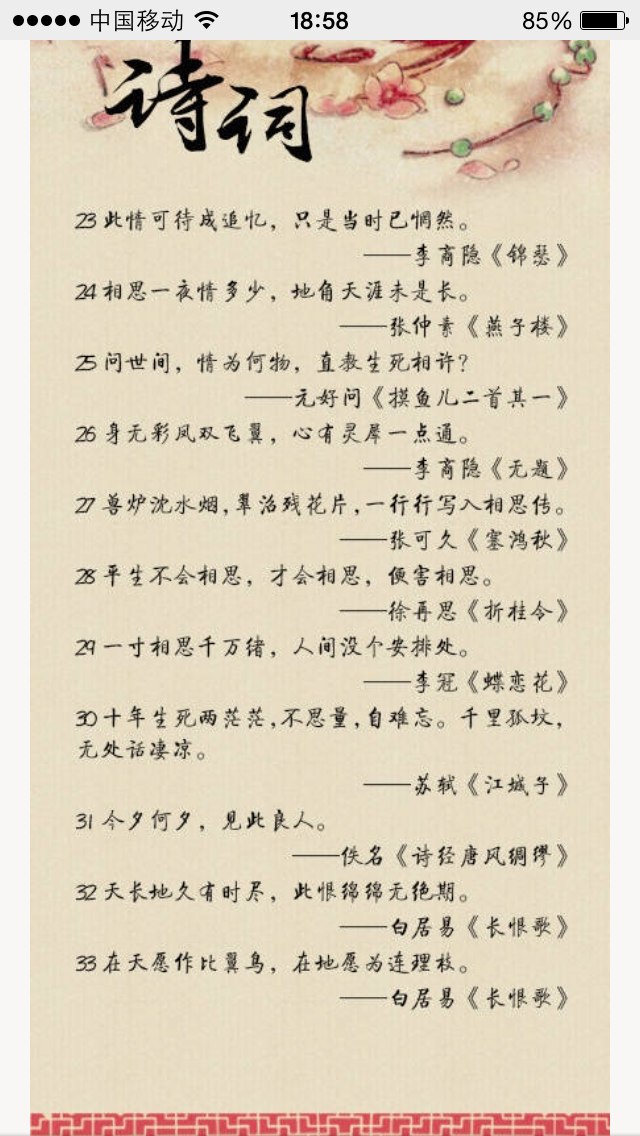 中国移动 18:58 85%
诗词
23 此情可待成追忆，只是当时已惘然。
——李商隐《锦瑟》
24 相思一夜情多少，地角天涯未是长。
——张仲素《燕子楼》
25 问世间，情为何物，直教生死相许？
——元好问《摸鱼儿二首其一》
26 身无彩凤双飞翼，心有灵犀一点通。
——李商隐《无题》
27 兽炉沈水烟,翠沼残花片,一行行写入相思传。
——张可久《塞鸿秋》
28 平生不会相思，才会相思，便害相思。
——徐再思《折桂令》
29 一寸相思千万绪，人间没个安排处。
——李冠《蝶恋花》
30 十年生死两茫茫,不思量,自难忘。千里孤坟，
无处话凄凉。
——苏轼《江城子》
31 今夕何夕，见此良人。
——佚名《诗经唐风绸缪》
32 天长地久有时尽，此恨绵绵无绝期。
——白居易《长恨歌》
33 在天愿作比翼鸟，在地愿为连理枝。
——白居易《长恨歌》